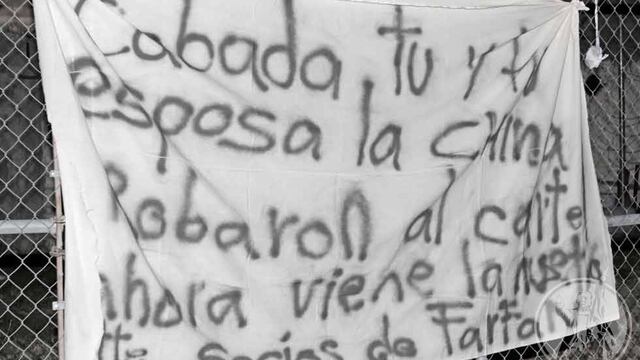 Cabada tu y tu
esposa la China
Robaron al carte
ahora viene la nuestra
tte socios de Farfan